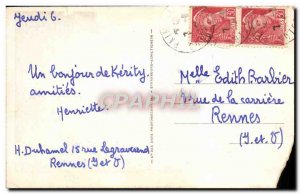 Jeudi 6.
Un bonjour de Kérity
amitiés.
Henriette.
H. Duhamel 15 rue Legraverend
Rennes (I et V)
Melle Edith Barbier
rue de la carrière
Rennes
(I. et V)